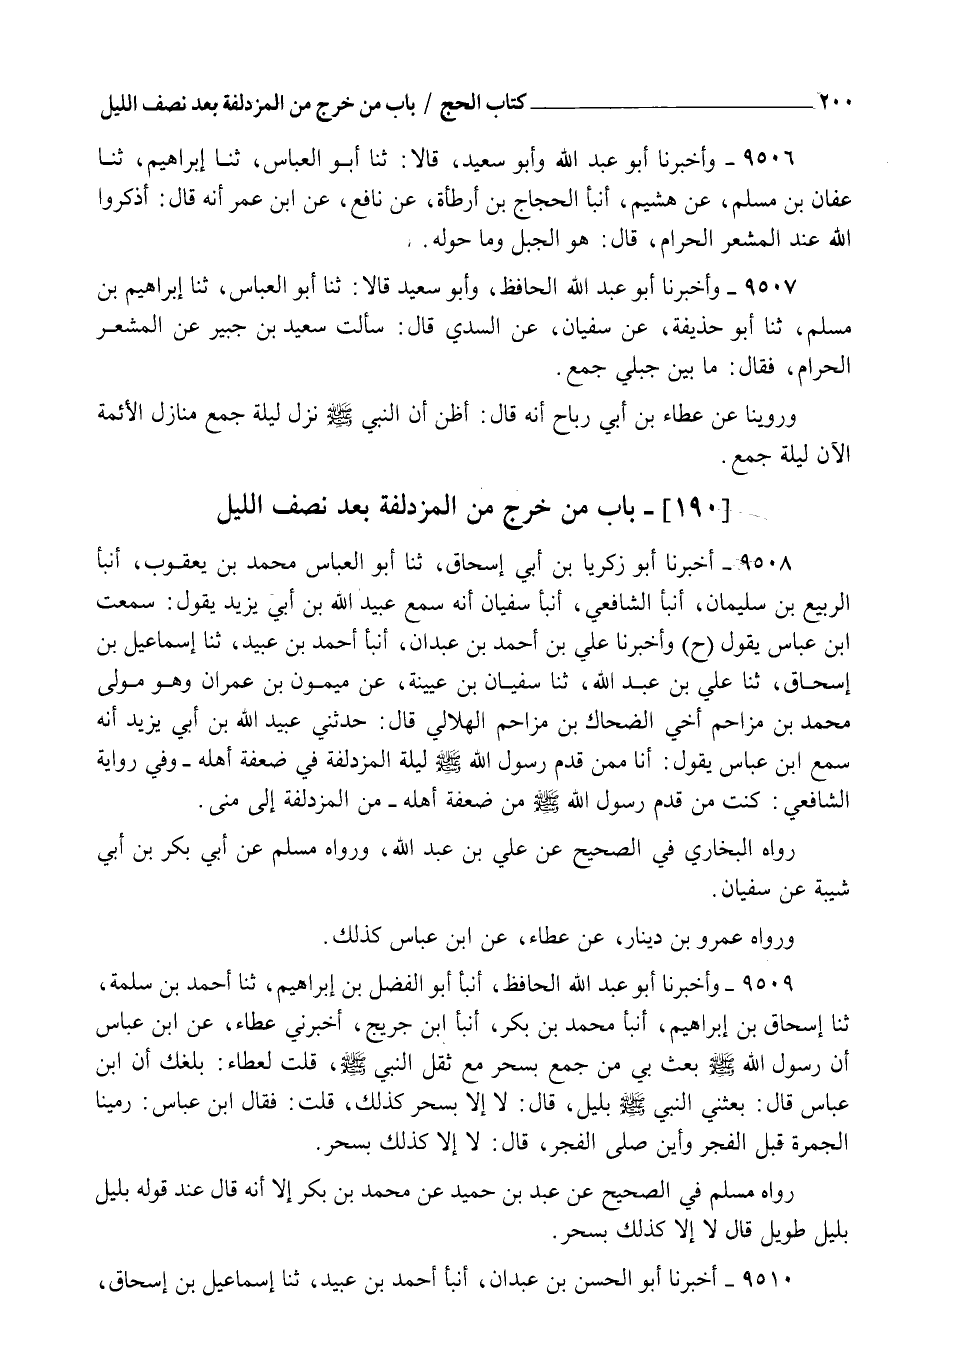 ٢٠٠ ــــــــــ كتاب الحج / باب من خرج من المزدلفة بعد نصف الليل
٩٥٠٦ ـ وأخبرنا أبو عبد الله وأبو سعيد، قالا: ثنا أبو العباس، ثنا إبراهيم، ثنا
عفان بن مسلم، عن هشيم، أنبأ الحجاج بن أرطأة، عن نافع، عن ابن عمر أنه قال: أذكروا
الله عند المشعر الحرام، قال: هو الجبل وما حوله.
٩٥٠٧ ـ وأخبرنا أبو عبد الله الحافظ، وأبو سعيد قالا: ثنا أبو العباس، ثنا إبراهيم بن
مسلم، ثنا أبو حذيفة، عن سفيان، عن السدي قال: سألت سعيد بن جبير عن المشعر
الحرام، فقال: ما بين جبلي جمع.
وروينا عن عطاء بن أبي رباح أنه قال: أظن أن النبي ﷺ نزل ليلة جمع منازل الأئمة
الآن ليلة جمع.
[١٩٠] ـ باب من خرج من المزدلفة بعد نصف الليل
٩٥٠٨ ـ أخبرنا أبو زكريا بن أبي إسحاق، ثنا أبو العباس محمد بن يعقوب، أنبأ
الربيع بن سليمان، أنبأ الشافعي، أنبأ سفيان أنه سمع عبيد الله بن أبي يزيد يقول: سمعت
ابن عباس يقول (ح) وأخبرنا علي بن أحمد بن عبدان، أنبأ أحمد بن عبيد، ثنا إسماعيل بن
إسحاق، ثنا علي بن عبد الله، ثنا سفيان بن عيينة، عن ميمون بن عمران وهو مولى
محمد بن مزاحم أخي الضحاك بن مزاحم الهلالي قال: حدثني عبيد الله بن أبي يزيد أنه
سمع ابن عباس يقول: أنا ممن قدم رسول الله ﷺ ليلة المزدلفة في ضعفة أهله ـ وفي رواية
الشافعي: كنت من قدم رسول الله ﷺ من ضعفة أهله ـ من المزدلفة إلى منى.
رواه البخاري في الصحيح عن علي بن عبد الله، ورواه مسلم عن أبي بكر بن أبي
شيبة عن سفيان.
ورواه عمرو بن دينار، عن عطاء، عن ابن عباس كذلك.
٩٥٠٩ ـ وأخبرنا أبو عبد الله الحافظ، أنبأ أبو الفضل بن إبراهيم، ثنا أحمد بن سلمة،
ثنا إسحاق بن إبراهيم، أنبأ محمد بن بكر، أنبأ ابن جريج، أخبرني عطاء، عن ابن عباس
أن رسول الله ﷺ بعث بي من جمع بسحر مع ثقل النبي ﷺ، قلت لعطاء: بلغك أن ابن
عباس قال: بعثني النبي ﷺ بليل، قال: لا إلا بسحر كذلك، قلت: فقال ابن عباس: رمينا
الجمرة قبل الفجر وأين صلى الفجر، قال: لا إلا كذلك بسحر.
رواه مسلم في الصحيح عن عبد بن حميد عن محمد بن بكر إلا أنه قال عند قوله بليل
بليل طويل قال لا إلا كذلك بسحر.
٩٥١٠ ـ أخبرنا أبو الحسن بن عبدان، أنبأ أحمد بن عبيد، ثنا إسماعيل بن إسحاق،